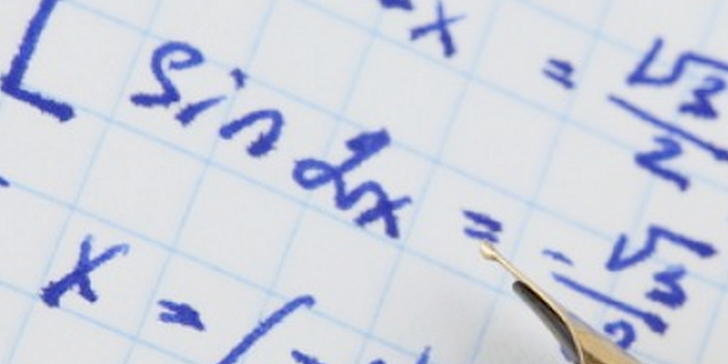 x = √3/2
[ sin 2x = -√3/2
x = (-